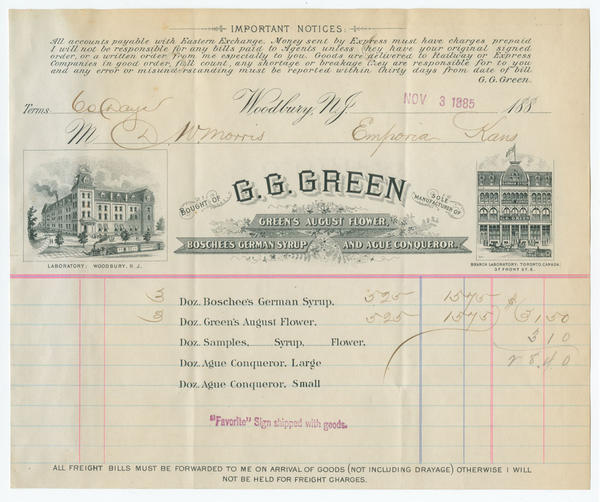 IMPORTANT NOTICES:
All accounts payable with Eastern Exchange. Money sent by Express must have charges prepaid
I will not be responsible for any bills paid to Agents unless they have your original signed
order, or a written order from me especially to you. Goods are delivered to Railway or Express
Companies in good order, full count, any shortage or breakage they are responsible for to you
and any error or misunderstanding must be reported within thirty days from date of bill.
G. G. Green.
Terms 60 Days Woodbury, N.J. NOV 3 1885 188
M D W Morris Emporia Kans
BOUGHT OF G. G. GREEN SOLE MANUFACTURER OF
GREEN'S AUGUST FLOWER,
BOSCHEE'S GERMAN SYRUP AND AGUE CONQUEROR.
LABORATORY: WOODBURY, N. J.
BRANCH LABORATORY: TORONTO, CANADA.
37 FRONT ST. E.
3 Doz. Boschee's German Syrup. 525 1575 $
3 Doz. Green's August Flower. 525 1575 3150
Doz. Samples, Syrup, Flower. 310
Doz. Ague Conqueror. Large 28.40
Doz. Ague Conqueror. Small
"Favorite" Sign shipped with goods.
ALL FREIGHT BILLS MUST BE FORWARDED TO ME ON ARRIVAL OF GOODS (NOT INCLUDING DRAYAGE) OTHERWISE I WILL
NOT BE HELD FOR FREIGHT CHARGES.